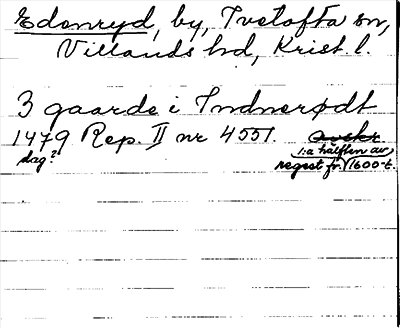 Edenryd, by, Ivetofta sn,
Villands hd, Krist. l.
3 gaarde i Indnerødt
1479 Rep. II nr 4551. avskr
dag? 1:a hälften av
regest fr. 1600-t.